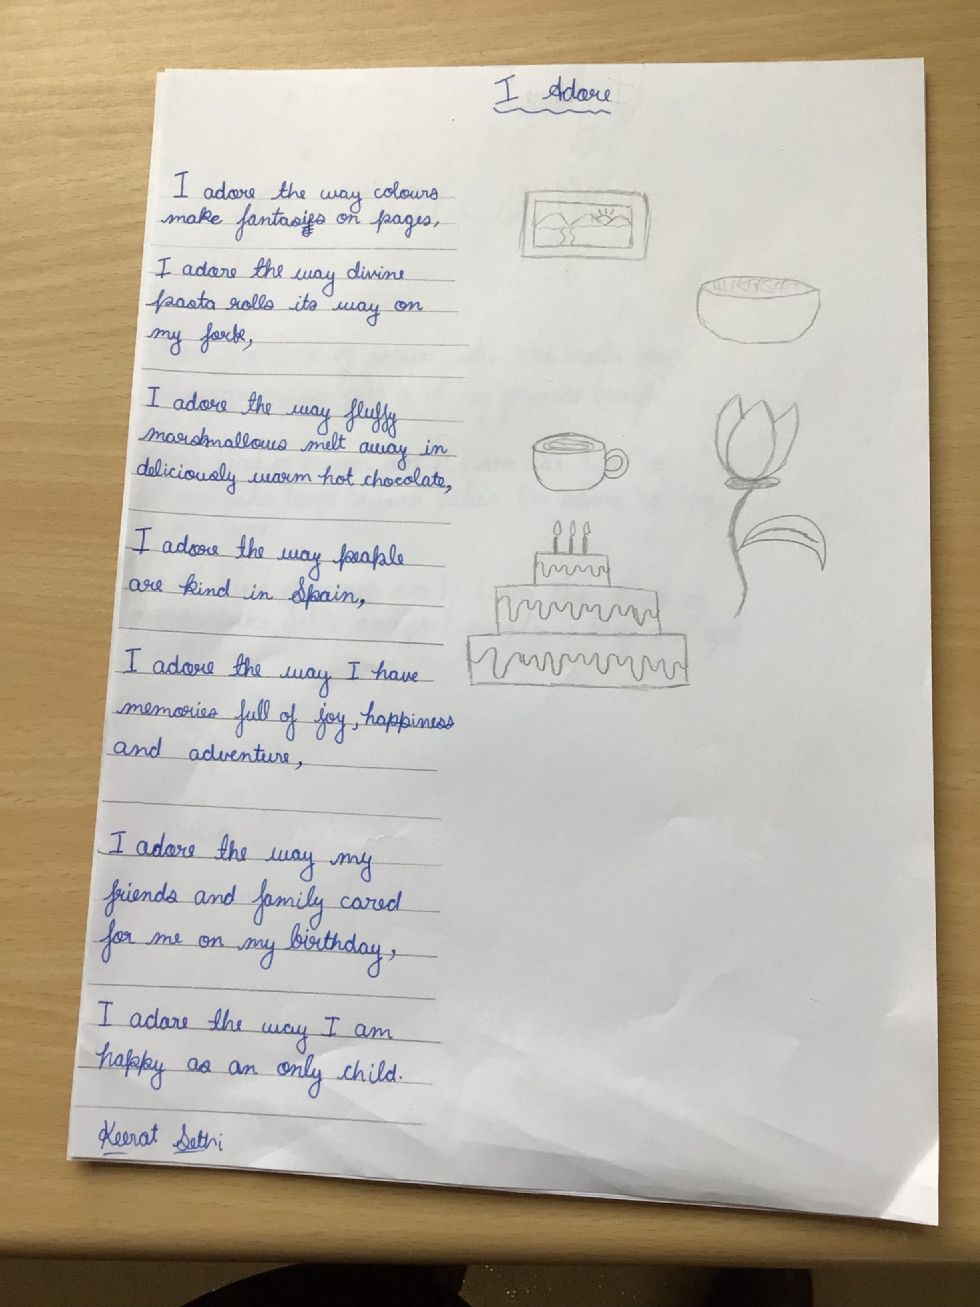 I Adore
I adore the way colours
make fantasies on pages,
I adore the way divine
pasta rolls its way on
my fork,
I adore the way fluffy
marshmallows melt away in
deliciously warm hot chocolate,
I adore the way people
are kind in Spain,
I adore the way I have
memories full of joy, happiness
and adventure,
I adore the way my
friends and family cared
for me on my birthday,
I adore the way I am
happy as an only child.
Keerat Sethi